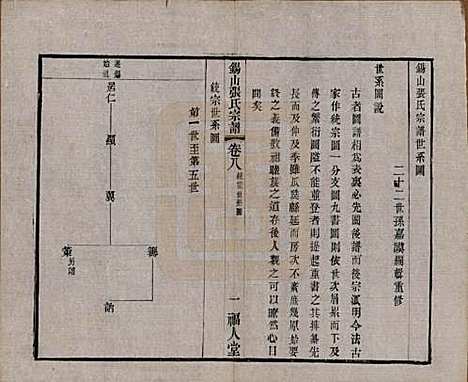 錫山張氏宗譜世系圖
二十二世孫嘉謨綱齡重修
世系圖說
古者圖譜相為表裏必先圖後譜而後宗派明今法古
家作統宗圖一分支圖九書圖則依世次眉累而下及
傳之繁衍圖隘不能並登者則提起重書之其排纂先
長而及仲及季雖瓜瓞縣延而房次不紊庶幾原始要
終之義備敦祖睦族之道存後人覽之可以瞭然心目
間矣
錫山張氏宗譜
卷八
統宗世系圖
一
福人堂
統宗世系圖
第一世至第五世
遷錫
始祖
仁
顯